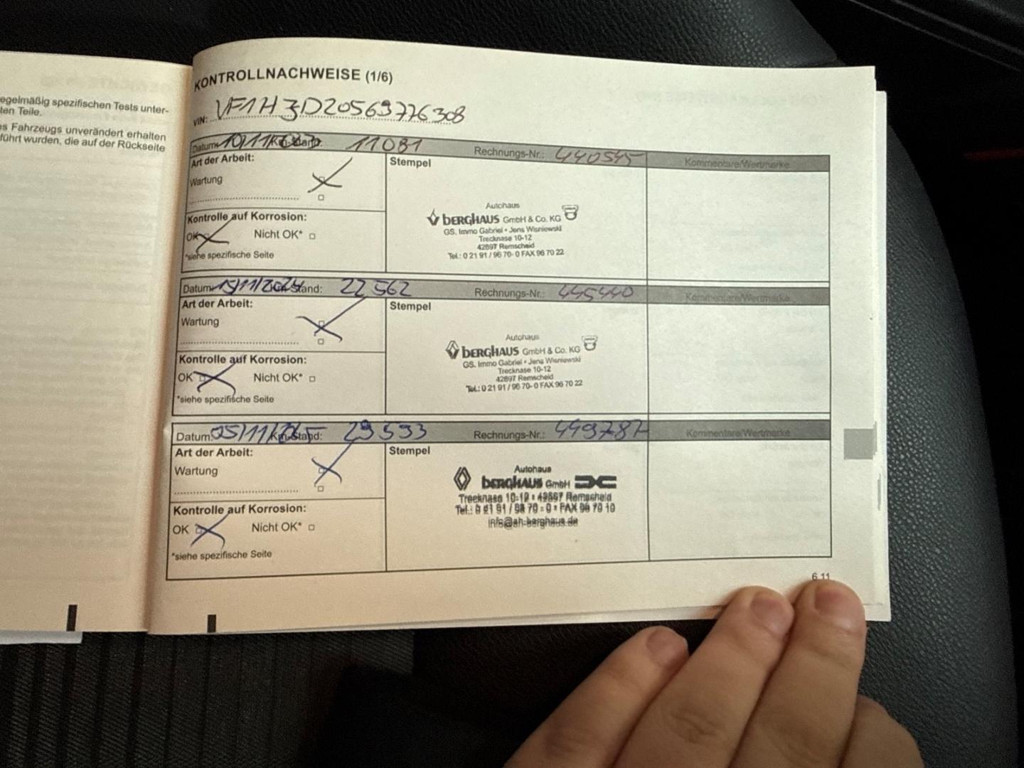 egelmäßig spezifischen Tests unter-
len Teile.
s Fahrzeugs unverändert erhalten
führt wurden, die auf der Rückseite
KONTROLLNACHWEISE (1/6)
VIN: VF1H3D20569776308
Datum: 10/11/ 11081 Rechnungs-Nr.: 440545 Kommentare/Wertmarke
Art der Arbeit: Stempel
Wartung
Kontrolle auf Korrosion:
OK Nicht OK*
*siehe spezifische Seite
Autohaus
BERGHAUS GmbH & Co. KG
GS. Immo Gabriel • Jens Wisniewski
Trecknase 10-12
42897 Remscheid
Tel.: 0 21 91 / 96 70- 0 FAX 96 70 22
Datum: 15/11/2024 Km-Stand: 22562 Rechnungs-Nr.: 445440 Kommentare/Wertmarke
Art der Arbeit: Stempel
Wartung
Kontrolle auf Korrosion:
OK Nicht OK*
*siehe spezifische Seite
Autohaus
BERGHAUS GmbH & Co. KG
GS. Immo Gabriel • Jens Wisniewski
Trecknase 10-12
42897 Remscheid
Tel.: 0 21 91 / 96 70- 0 FAX 96 70 22
Datum: 05/11/ Km-Stand: 29593 Rechnungs-Nr.: 449787 Kommentare/Wertmarke
Art der Arbeit: Stempel
Wartung
Kontrolle auf Korrosion:
OK Nicht OK*
*siehe spezifische Seite
Autohaus
BERGHAUS GmbH
Trecknase 10-12 • 42897 Remscheid
Tel.: 0 21 91 / 96 70 - 0 • FAX 96 70 10
info@ah-berghaus.de
6.11